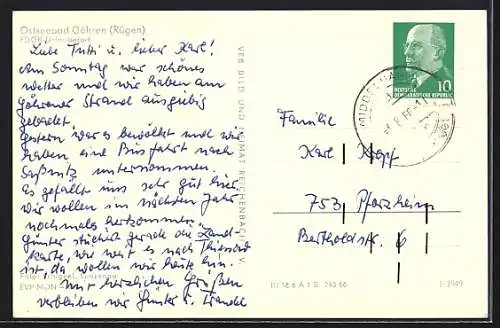 Ostseebad Göhren (Rügen)
FDGB-Urlauberort
Liebe Tutti u. lieber Karl!
Am Sonntag war schönes
Wetter und wir haben am
Göhrener Strand ausgiebig
gebadet
Gestern war es bewölkt und wir
haben eine Busfahrt nach
Saßnitz unternommen.
Es gefällt uns sehr gut hier.
Wir wollen im nächsten Jahr
nochmals herkommen.
Günter studiert gerade die Land-
karte, wie weit es nach Thiessow
ist, da wollen wir heute hin.
Mit herzlichen Grüßen
verbleiben wir Günter u. Traudel
VEB BILD UND HEIMAT REICHENBACH I. V.
DEUTSCHE
DEMOKRATISCHE REPUBLIK
10
Familie
Karl Kropf
753 Pforzheim
Bertholdstr. 6
EVP MDN